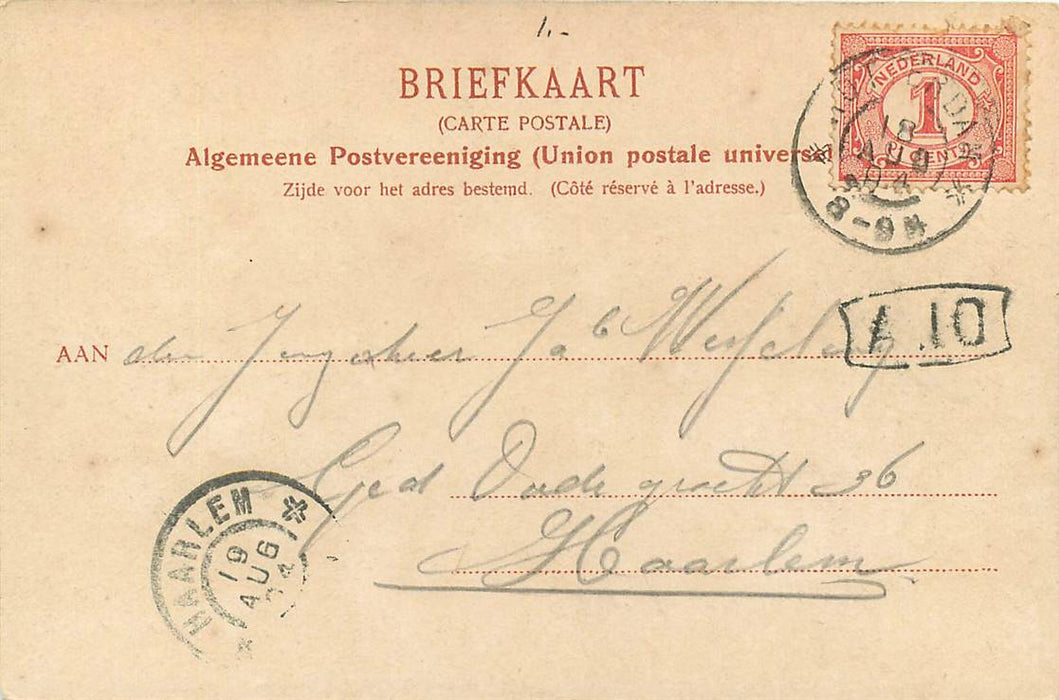 1.-
BRIEFKAART
(CARTE POSTALE)
Algemeene Postvereeniging (Union postale universe
Zijde voor het adres bestemd. (Côté réservé à l'adresse.)
NEDERLAND
1
CENT
18
AUG
04
8-9N
AAN den Jongeheer Jac
A 10
Ged Oude gracht 36
Haarlem
HAARLEM
19
AUG
04